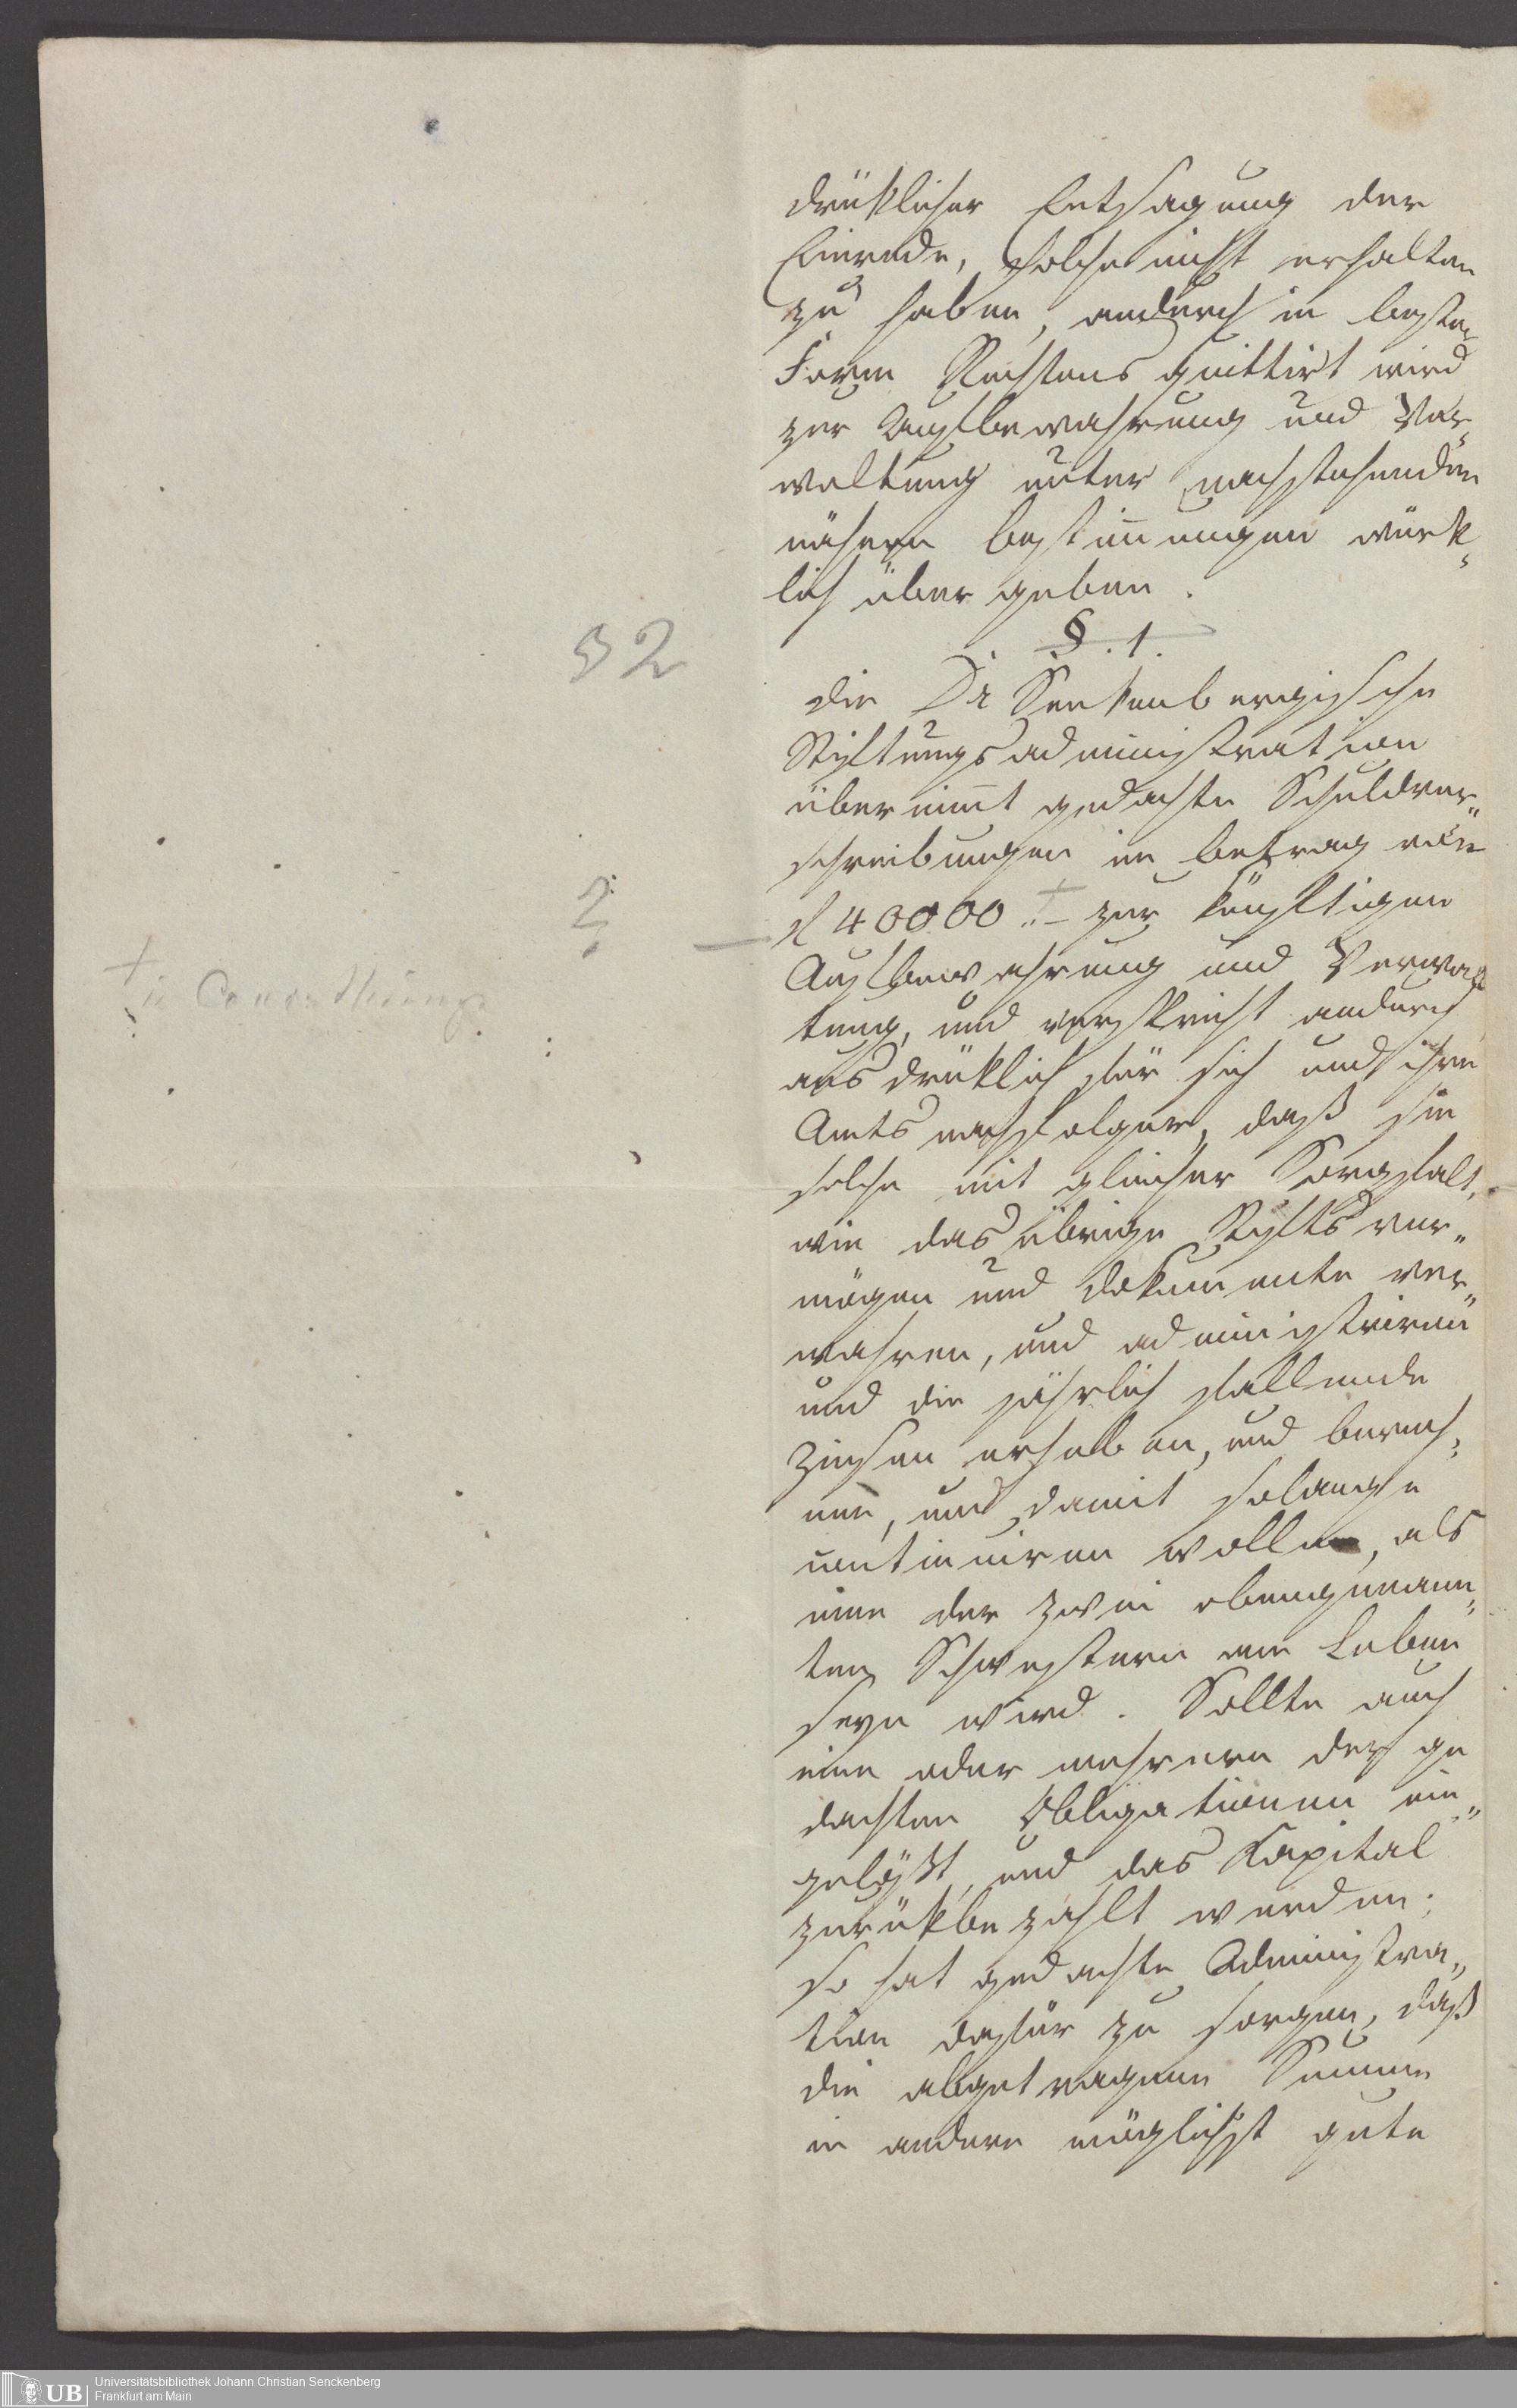 drüklicher Entsagung der
Einrede, solche nicht erhalten
zu haben, andurch in bester
Form Rechtens quittirt wird
zur Aufbewahrung und Ver-
waltung unter nachstehenden
nähern bestim̄ungen würk-
lich übergeben.
§. 1.
§ 2
die Dr Senkenbergische
Stiftungsadministration
übernim̄t gedachte Schuldver„
schreibungen im betrag von
?
fl 40000 .– zur künftigen
+
+
in
Aufbewahrung und Verwal
tung, und verspricht andurch
ausdrüklich für sich und ihre
Amtsnachfolger, daß sie
solche mit gleicher Sorgfalt,
wie das übrige Stiftsver„
mögen und dokumente ver„
wahren, und administriren
und die jährlich fallende
Zinsen erheben, und berech„
nen, und damit solange
continuiren wollen, als
eine der zwei obengenann„
ten Schwestern am Leben
seyn wird. Sollte auch
eine oder mehrere der ge
dachten Obligationen ein„
gelößt, und das Kapital
zurükbezahlt werden;
so hat gedachte Administra„
tion dafür zu sorgen, daß
die abgetragene Summe
in andere möglichst gute
UB
Universitätsbibliothek Johann Christian Senckenberg
Frankfurt am Main